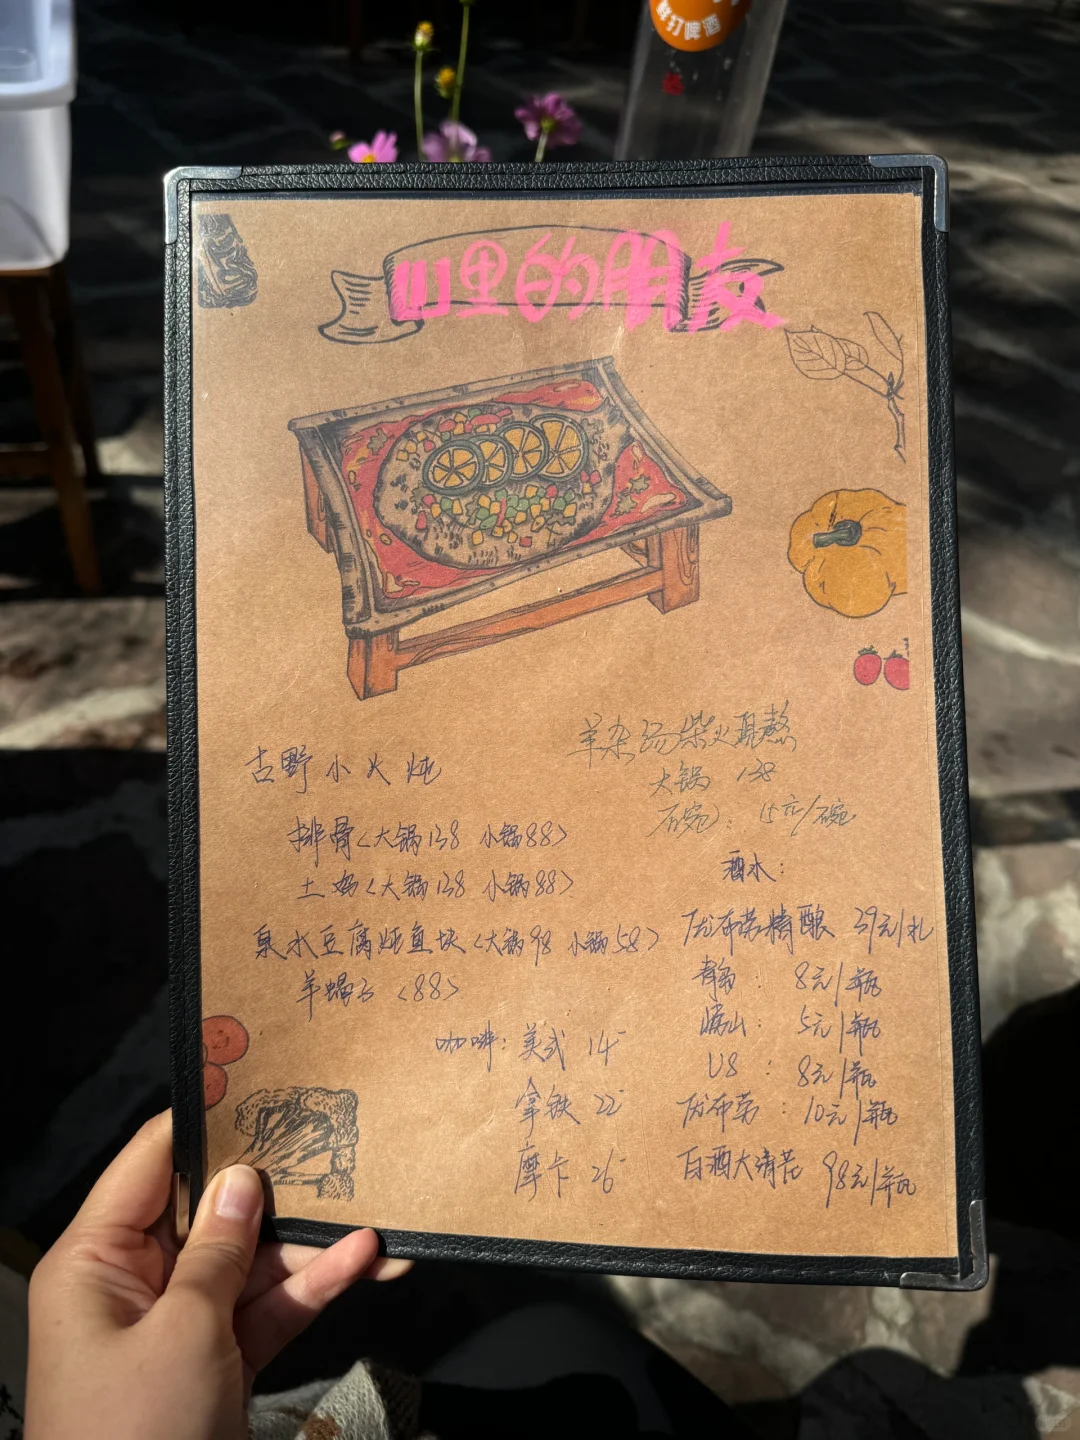 鲜打啤酒
山里的朋友
古野小火炖
排骨<大锅138 小锅88>
土鸡<大锅138 小锅88>
泉水豆腐炖鱼块<大锅98 小锅58>
羊蝎子<88>
咖啡：美式 14
拿铁 22
摩卡 26
羊杂汤柴火现熬
大锅 138
碗：15元/碗
酒水：
优布劳精酿 39元/扎
青岛：8元/瓶
崂山：5元/瓶
U8：8元/瓶
优布劳：10元/瓶
白酒大清花 98元/瓶